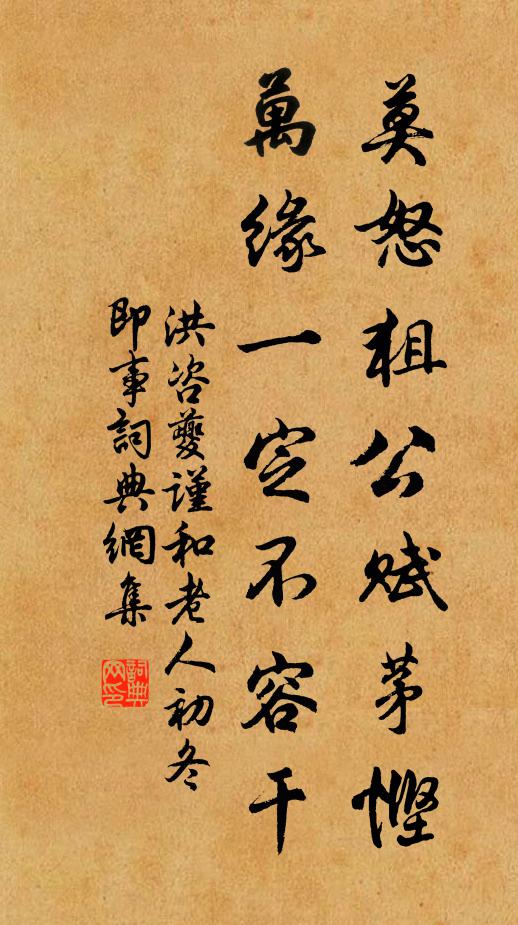 莫怒租公賦茅慳
萬緣一定不容干
洪咨夔謹和老人初冬
即事詞典網集
詞典
网印